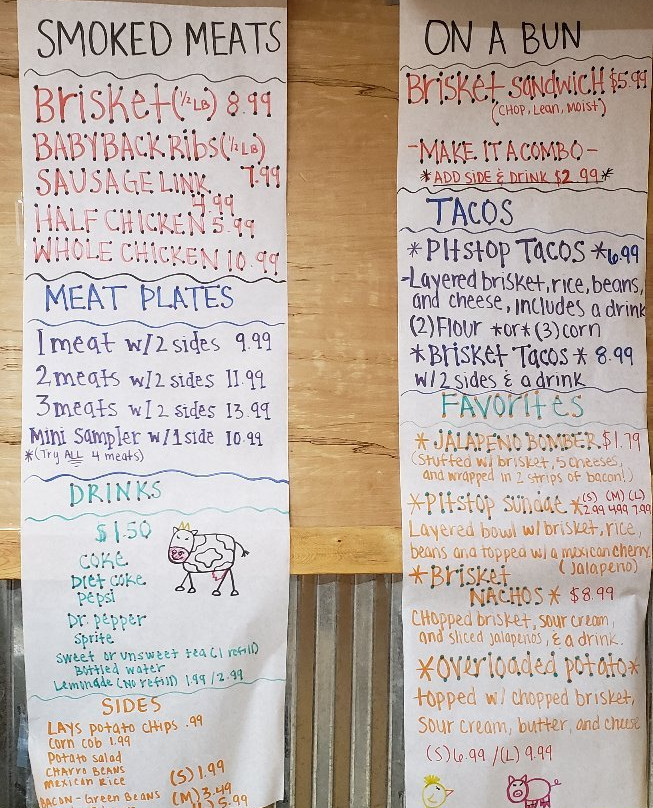 SMOKED MEATS
Brisket (1/2 LB) 8.99
BABYBACK Ribs (1/2 LB)
7.99
SAUSAGE LINK
4.99
HALF CHICKEN 5.99
WHOLE CHICKEN 10.99
MEAT PLATES
1 meat w/2 sides 9.99
2 meats w/2 sides 11.99
3 meats w/2 sides 13.99
Mini Sampler w/1 side 10.99
*(Try ALL 4 meats)
DRINKS
$1.50
COKE
Diet coke
pepsi
Dr. pepper
Sprite
Sweet or unsweet tea (1 refill)
Bottled water
Lemonade (No refill) 1.99/2.99
SIDES
LAYS potato chips .99
Corn cob 1.99
Potato salad
CHARRO BEANS
Mexican Rice
(S) 1.99
BACON-Green Beans (M) 3.49
5.99
ON A BUN
Brisket Sandwich $5.99
(CHOP, Lean, Moist)
-MAKE IT A COMBO-
*ADD SIDE & DRINK $2.99*
TACOS
*Pitstop Tacos *6.99
-Layered brisket, rice, beans,
and cheese, includes a drink
(2) Flour *or* (3) corn
*Brisket Tacos * 8.99
w/2 sides & a drink
FAVORITES
*JALAPENO BOMBER $1.79
(Stuffed w/ brisket, 5 cheeses,
and wrapped in 2 strips of bacon!)
*Pitstop Sundae * (S) (M) (L)
2.99 4.99 7.99
Layered bowl w/ brisket, rice,
beans and topped w/ a mexican cherry
(Jalapeno)
*Brisket
NACHOS * $8.99
Chopped brisket, sour cream,
and sliced jalapenos, & a drink.
*Overloaded potato*
topped w/ chopped brisket,
sour cream, butter, and cheese
(S) 6.99 /(L) 9.99